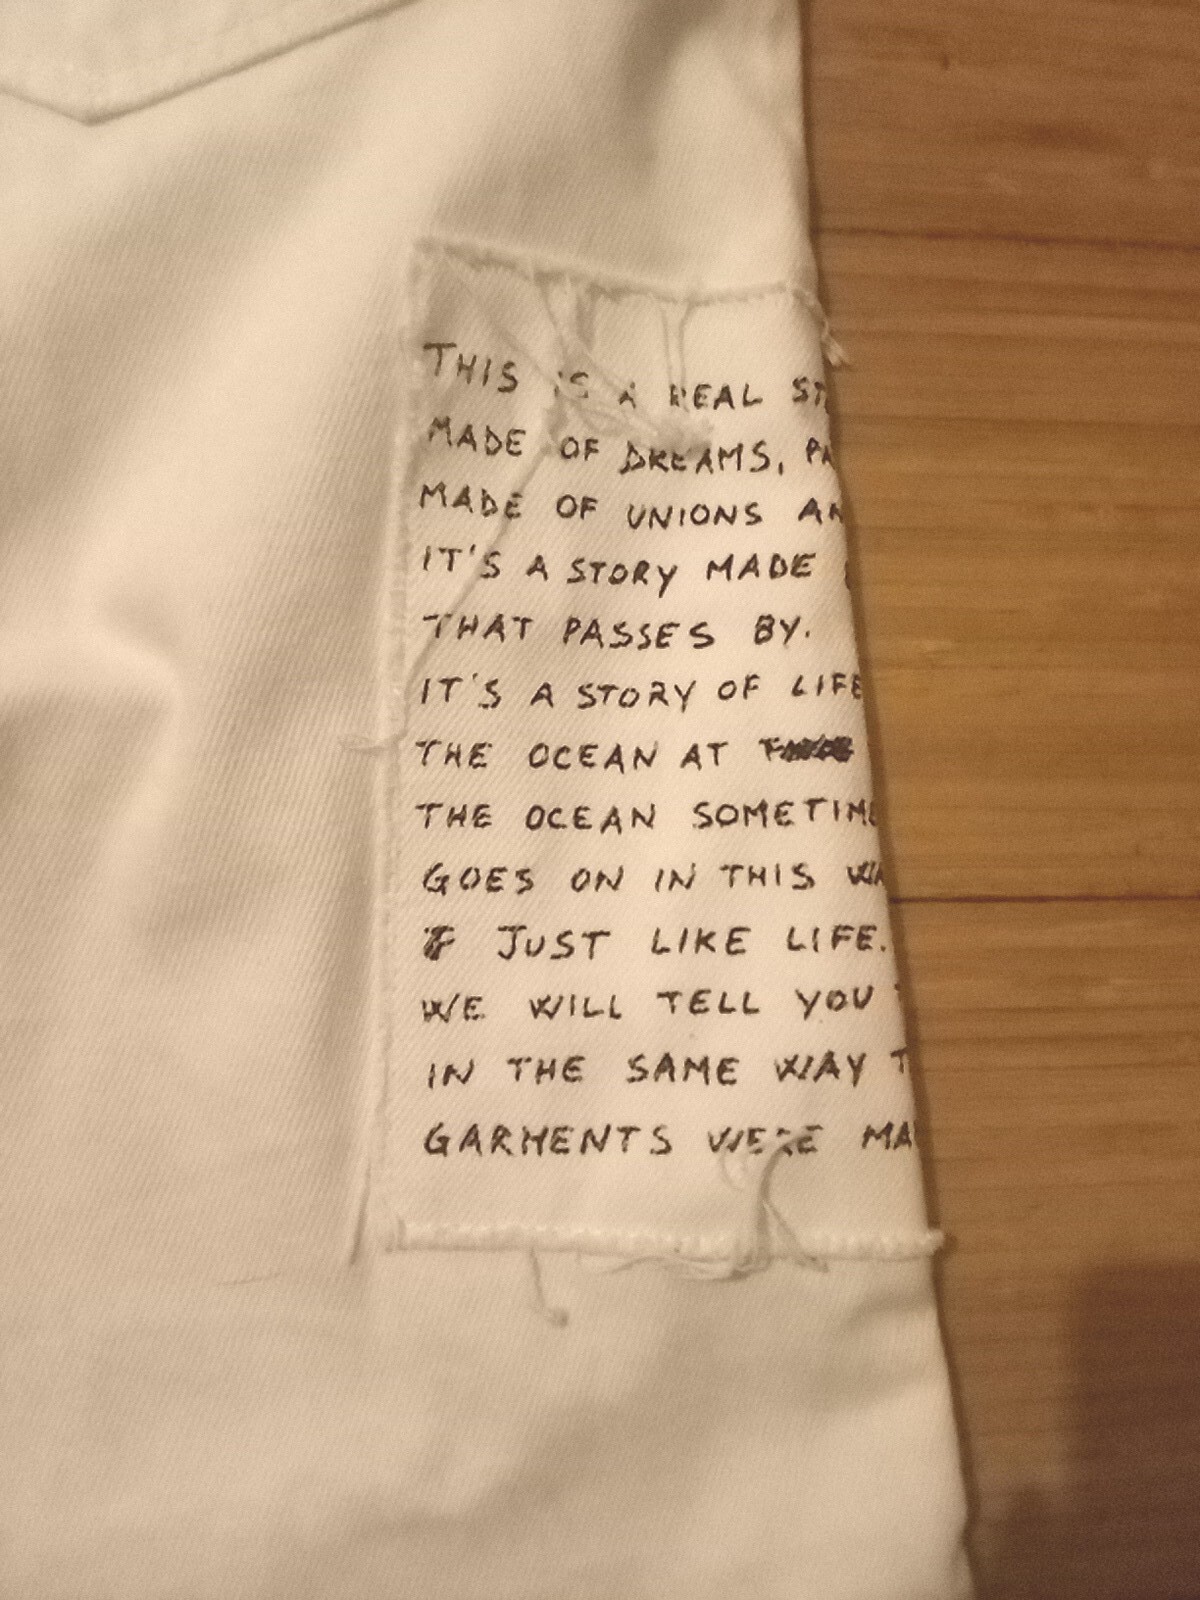 THIS IS A REAL ST
MADE OF DREAMS, PA
MADE OF UNIONS AN
IT'S A STORY MADE
THAT PASSES BY.
IT'S A STORY OF LIFE
THE OCEAN AT
THE OCEAN SOMETIME
GOES ON IN THIS WA
JUST LIKE LIFE.
WE WILL TELL YOU T
IN THE SAME WAY T
GARMENTS WERE MA